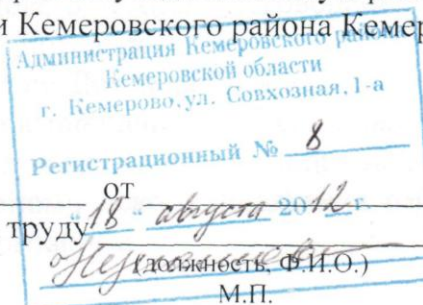 и Кемеровского района Кемер
Администрация Кемеровского района
Кемеровской области
г. Кемерово, ул. Совхозная, 1-а
Регистрационный № 8
от
труду "18" августа 2012 г.
(должность, Ф.И.О.)
М.П.